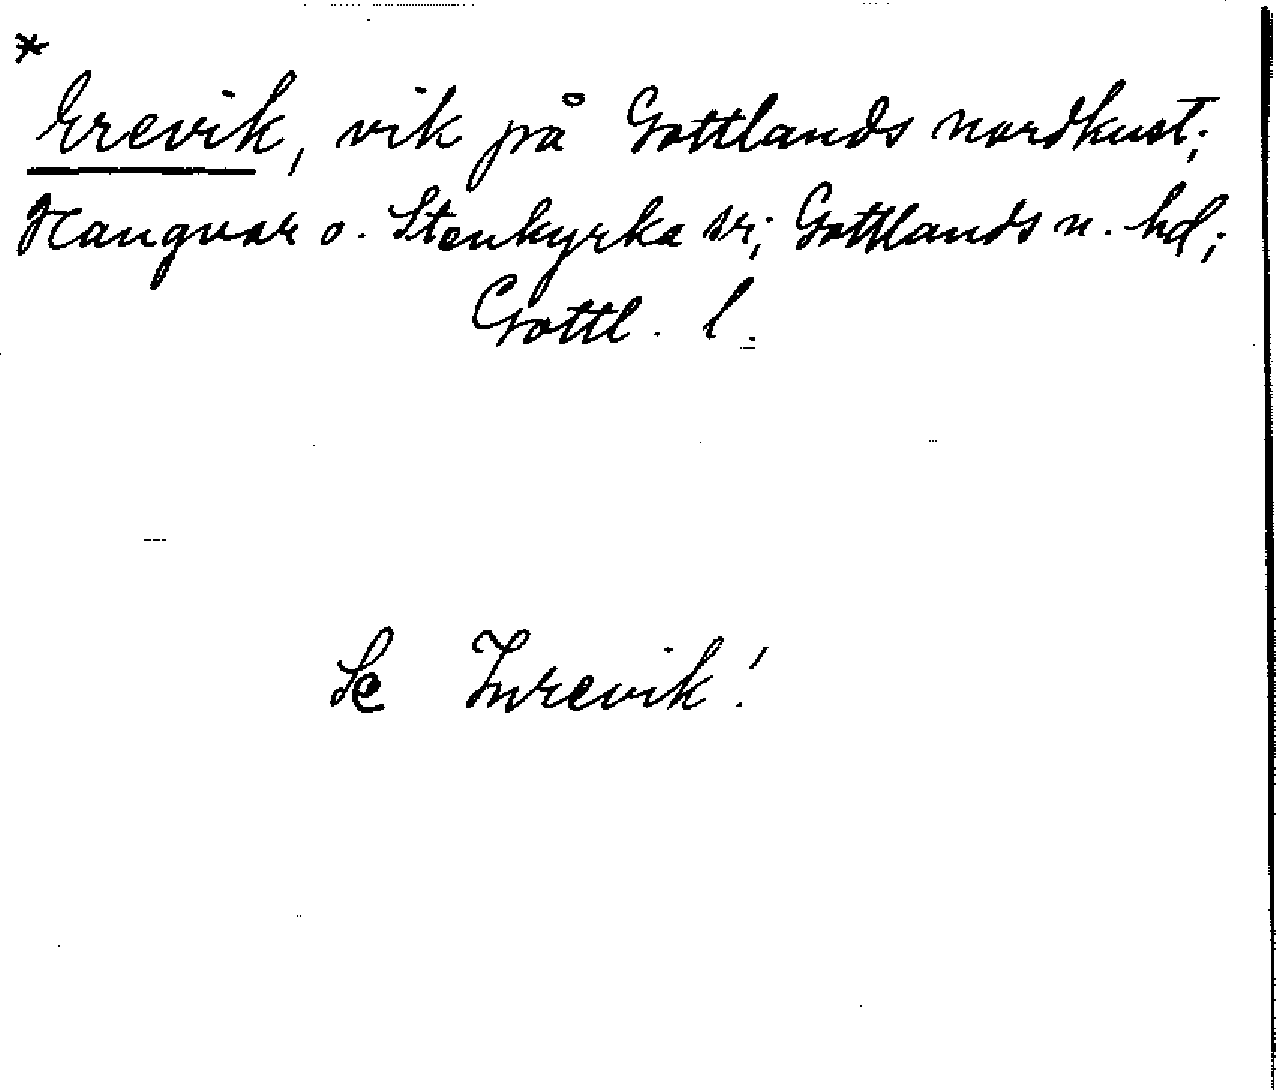 *
Erevik, vik på Gottlands nordkust;
Hangvar o. Stenkyrka sr; Gottlands n. hd;
Gottl. l.
Se Irevik!